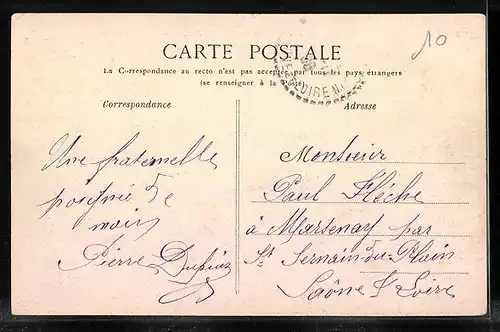 10
CARTE POSTALE
La Correspondance au recto n'est pas acceptée par tous les pays étrangers
(se renseigner à la Poste)
Correspondance
Une fraternelle
poignée de
main
Pierre
Adresse
Monsieur
Paul Flèche
à Martenay par
St Sernain-du-Plain
Saône & Loire